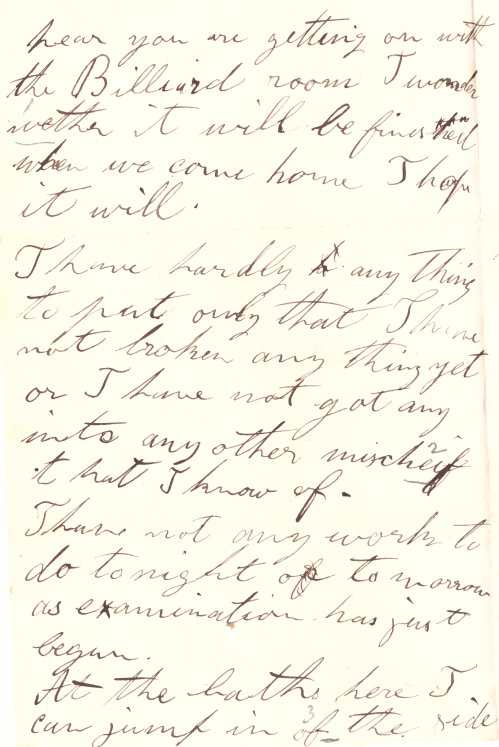 hear you are getting on with
the Billiard room I wonder
wether it will be finished
when we come home I hope
it will.
I have hardly any thing
to put only that I have
not broken any thing yet
or I have not got any
into any other mischeife
that I know of.
I have not any work to
do tonight or to morrow
as examination has just
begun.
At the baths here I
can jump in of the side